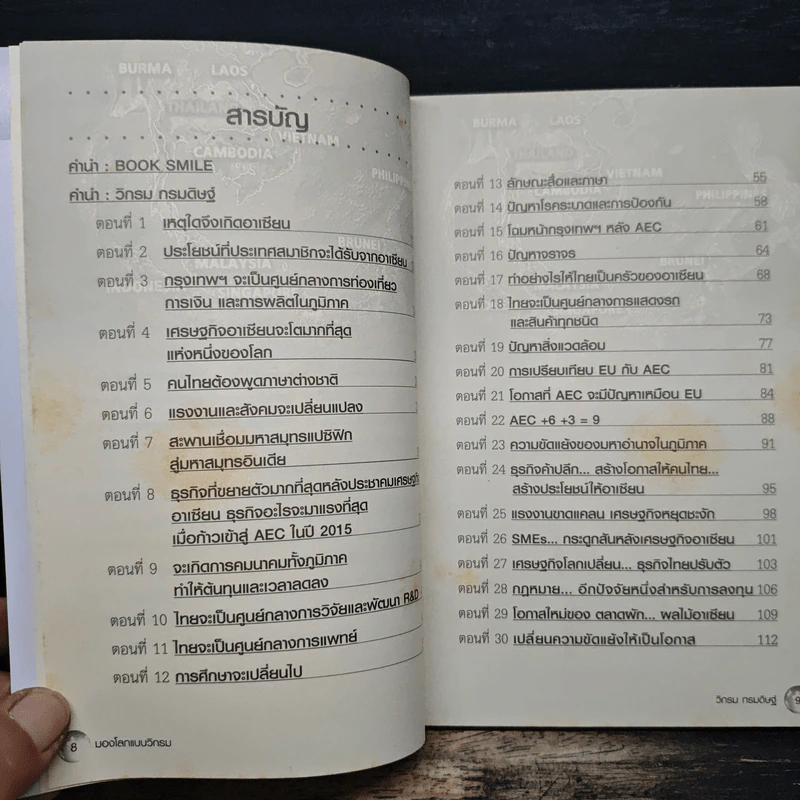 BURMA LAOS
THAILAND
สารบัญ
VIETNAM
CAMBODIA
PHILIPPINES
คำนำ : BOOK SMILE
คำนำ : วิกรม กรมดิษฐ์
ตอนที่ 1 เหตุใดจึงเกิดอาเซียน
BRUNEI
ตอนที่ 2 ประโยชน์ที่ประเทศสมาชิกจะได้รับจากอาเซียน
MALAYSIA
ตอนที่ 3 กรุงเทพฯ จะเป็นศูนย์กลางการท่องเที่ยว
การเงิน และการผลิตในภูมิภาค
ตอนที่ 4 เศรษฐกิจอาเซียนจะโตมากที่สุด
แห่งหนึ่งของโลก
ตอนที่ 5 คนไทยต้องพูดภาษาต่างชาติ
ตอนที่ 6 แรงงานและสังคมจะเปลี่ยนแปลง
ตอนที่ 7 สะพานเชื่อมมหาสมุทรแปซิฟิก
สู่มหาสมุทรอินเดีย
ตอนที่ 8 ธุรกิจที่ขยายตัวมากที่สุดหลังประชาคมเศรษฐกิจ
อาเซียน ธุรกิจอะไรจะมาแรงที่สุด
เมื่อก้าวเข้าสู่ AEC ในปี 2015
ตอนที่ 9 จะเกิดการคมนาคมทั้งภูมิภาค
ทำให้ต้นทุนและเวลาลดลง
ตอนที่ 10 ไทยจะเป็นศูนย์กลางการวิจัยและพัฒนา R&D
ตอนที่ 11 ไทยจะเป็นศูนย์กลางการแพทย์
ตอนที่ 12 การศึกษาจะเปลี่ยนไป
8 มองโลกแบบวิกรม
BURMA LAOS
VIETNAM
CAMBODIA
PHILIPPINES
ตอนที่ 13 ลักษณะสื่อและภาษา 55
ตอนที่ 14 ปัญหาโรคระบาดและการป้องกัน 58
ตอนที่ 15 โฉมหน้ากรุงเทพฯ หลัง AEC 61
ตอนที่ 16 ปัญหาจราจร 64
BRUNEI
ตอนที่ 17 ทำอย่างไรให้ไทยเป็นครัวของอาเซียน 68
ตอนที่ 18 ไทยจะเป็นศูนย์กลางการแสดงรถ
และสินค้าทุกชนิด 73
ตอนที่ 19 ปัญหาสิ่งแวดล้อม 77
ตอนที่ 20 การเปรียบเทียบ EU กับ AEC 81
ตอนที่ 21 โอกาสที่ AEC จะมีปัญหาเหมือน EU 84
ตอนที่ 22 AEC +6 +3 = 9 88
ตอนที่ 23 ความขัดแย้งของมหาอำนาจในภูมิภาค 91
ตอนที่ 24 ธุรกิจค้าปลีก... สร้างโอกาสให้คนไทย...
สร้างประโยชน์ให้อาเซียน 95
ตอนที่ 25 แรงงานขาดแคลน เศรษฐกิจหยุดชะงัก 98
ตอนที่ 26 SMEs... กระดูกสันหลังเศรษฐกิจอาเซียน 101
ตอนที่ 27 เศรษฐกิจโลกเปลี่ยน... ธุรกิจไทยปรับตัว 103
ตอนที่ 28 กฎหมาย... อีกปัจจัยหนึ่งสำหรับการลงทุน 106
ตอนที่ 29 โอกาสใหม่ของ ตลาดผัก... ผลไม้อาเซียน 109
ตอนที่ 30 เปลี่ยนความขัดแย้งให้เป็นโอกาส 112
วิกรม กรมดิษฐ์ 9